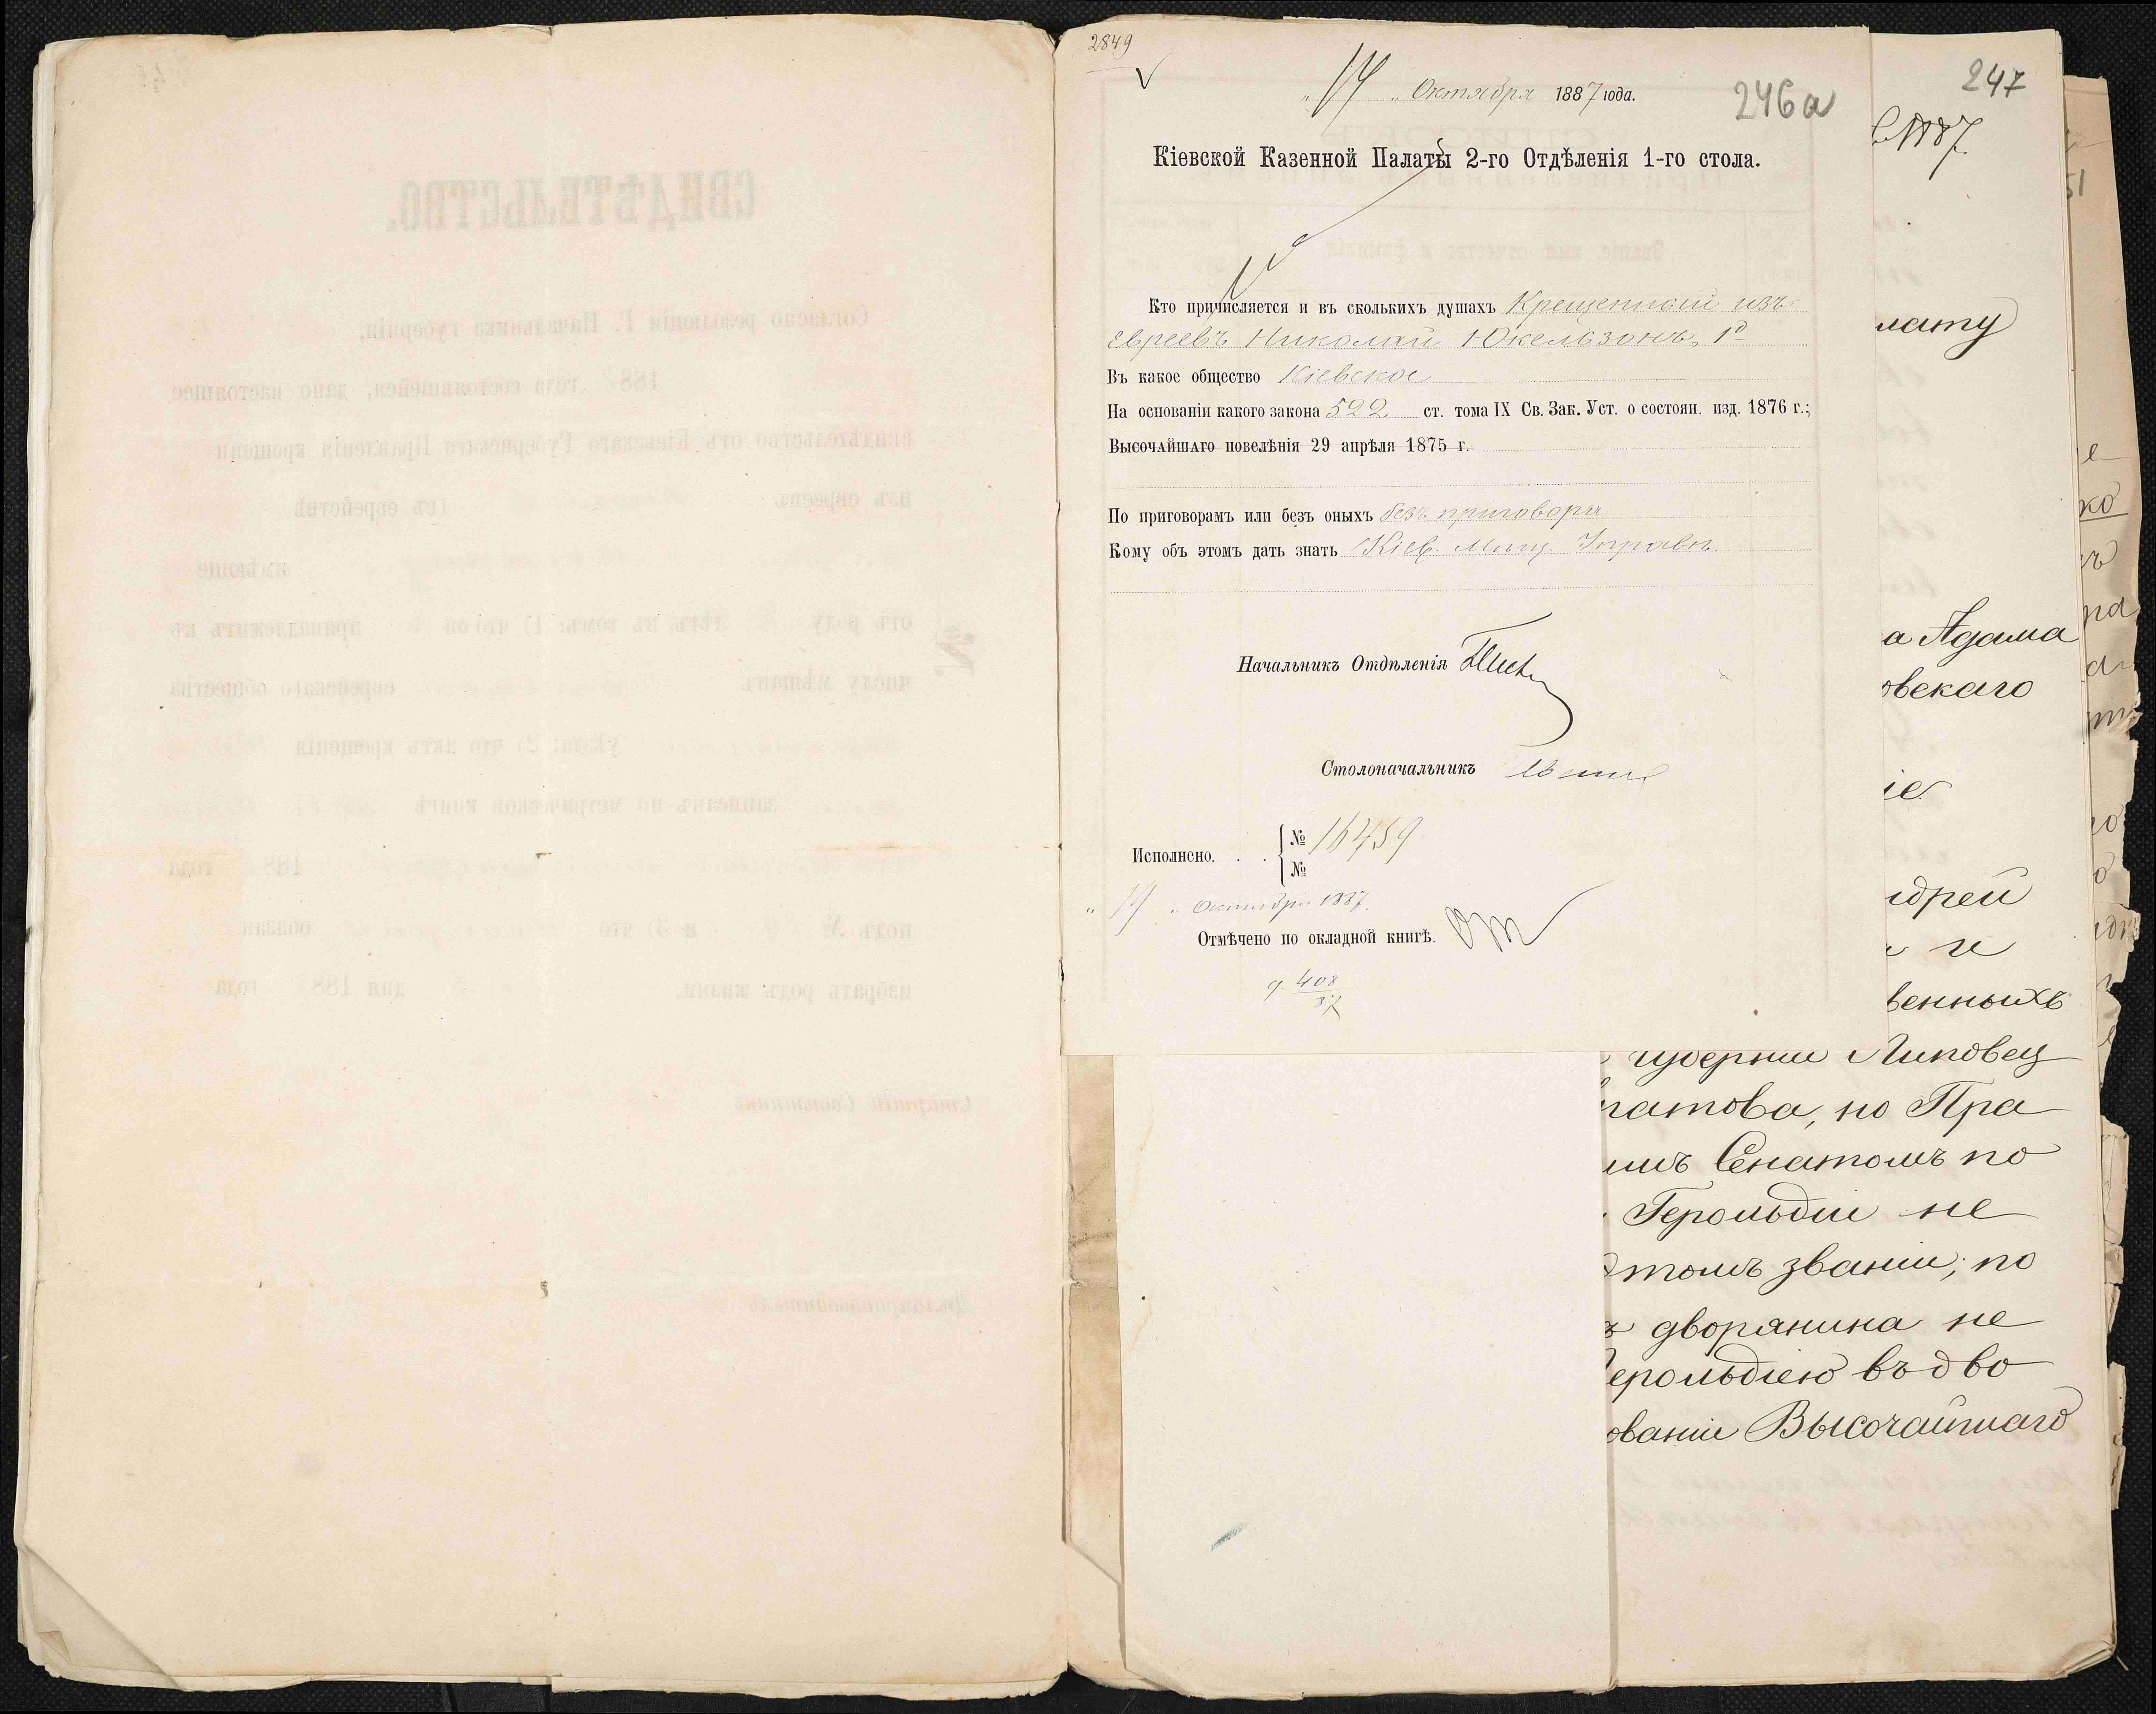 2849
„14„ Октября 1887 года.
246а
Кіевской Казенной Палаты 2-го Отдѣленія 1-го стола.
Кто причисляется и въ сколькихъ душахъ Крещенный изъ
евреевъ Николай Юкельзонъ, 1 д
Въ какое общество Кіевское
На основаніи какого закона 522. ст. тома IX Св. Зак. Уст. о состоян. изд. 1876 г.;
Высочайшаго повелѣнія 29 апрѣля 1875 г.
По приговорамъ или безъ оныхъ безъ приговора
Кому объ этомъ дать знать Кіев. Мѣщ. Управѣ
Начальникъ Отдѣленія
Столоначальникъ
Исполнено. . . № 16459
№
Октября 1887.
Отмѣчено по окладной книгѣ.
408
37
247
1887.
лату
а Адама
овскаго
іе
дрей
и
венныхъ
губерніи Липовец
натова, но Пра
имъ Сенатомъ по
Герольдіи не
этомъ званіи; по
дворянина не
ерольдіею въ дво
ованіи Высочайшаго
СВИДѢТЕЛЬСТВО.
Согласно резолюціи Г. Начальника губерніи,
188 года состоявшейся, дано настоящее
свидѣтельство отъ Кіевскаго Губернскаго Правленія крещен
изъ евреевъ (въ еврействѣ
имѣющ
отъ роду лѣтъ, въ томъ: 1) что он принадлежитъ къ
числу мѣщанъ еврейскаго общества
уѣзда; 2) что актъ крещенія
записанъ по метрической книгѣ
188 года
подъ № и 3) что обязан
избрать родъ жизни. дня 188 года
Старшій Совѣтникъ
Дѣлопроизводитель